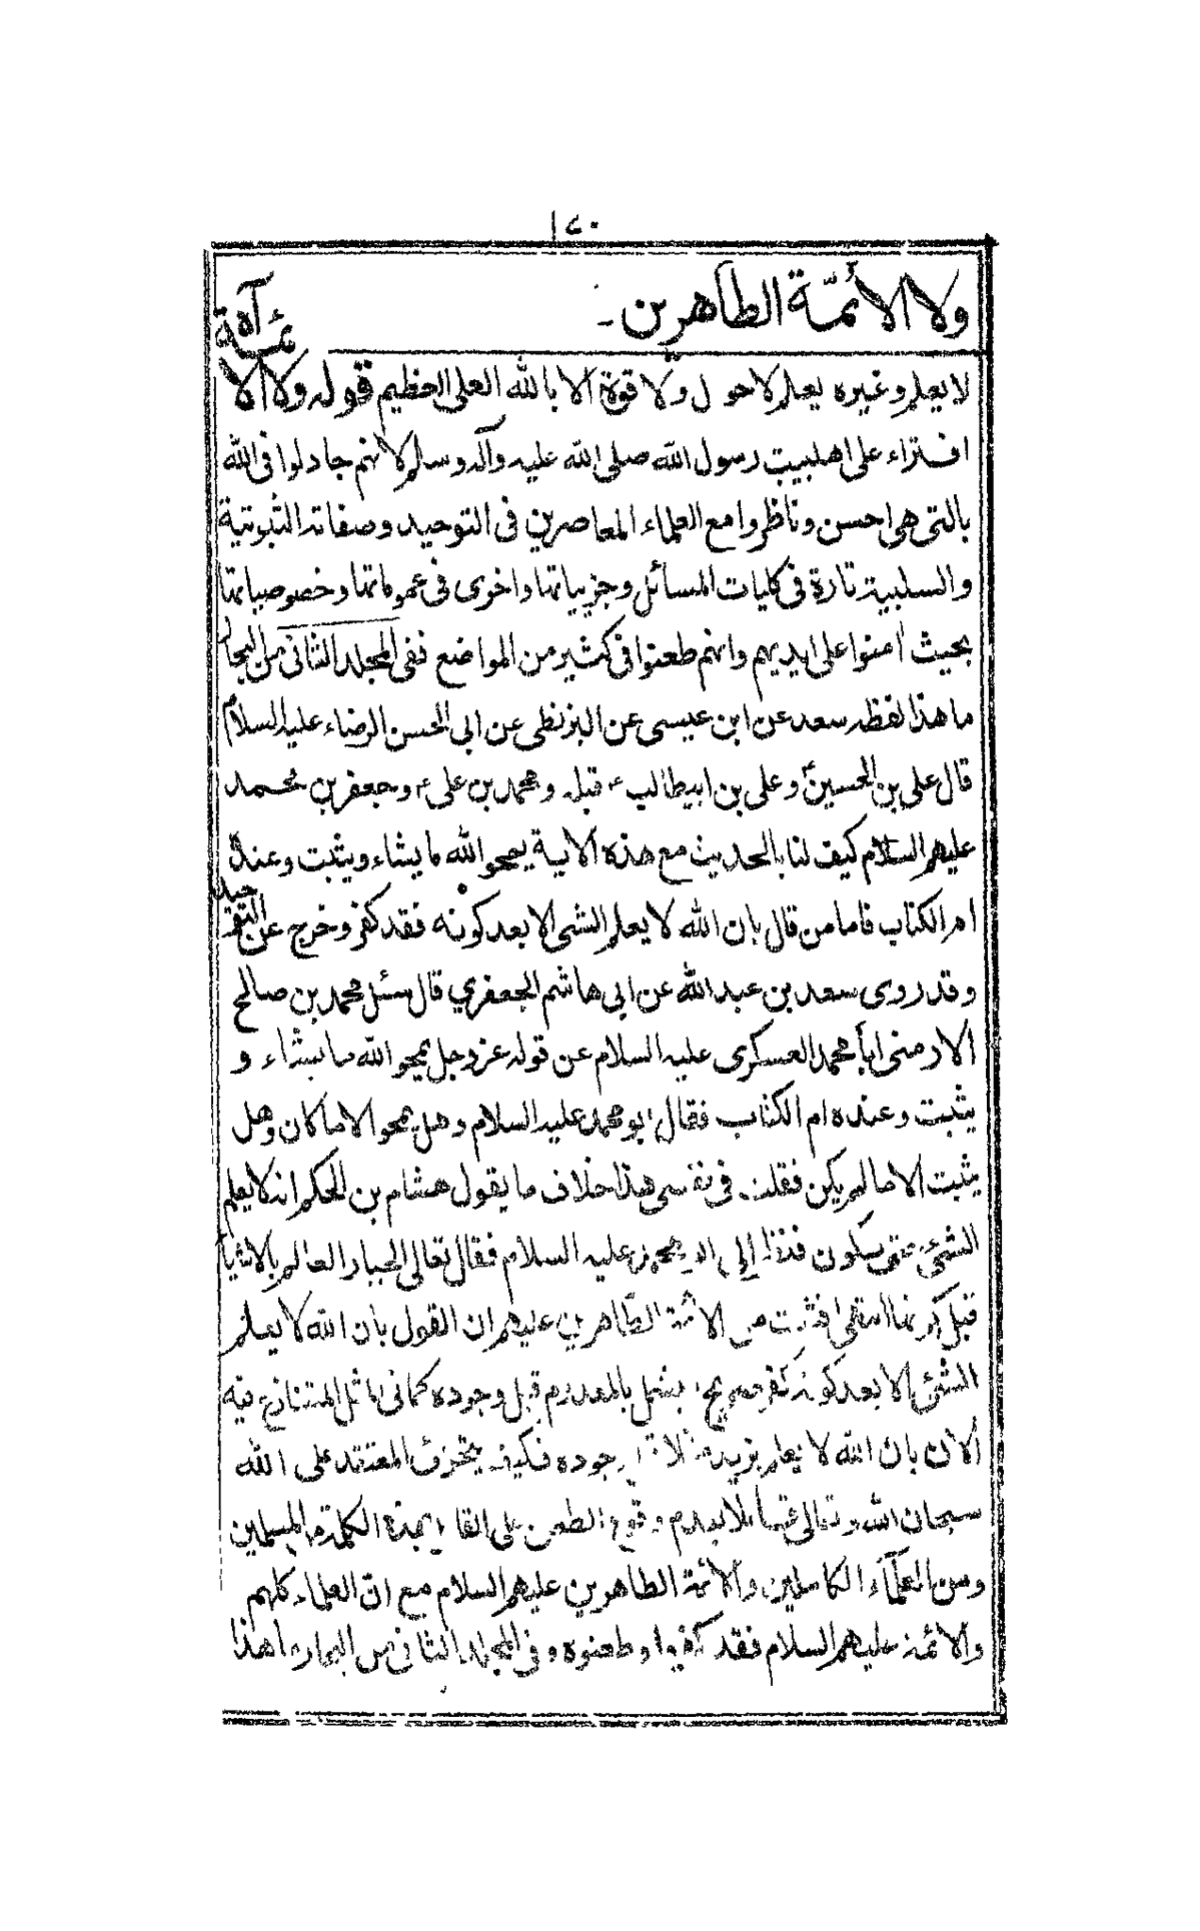 ١٤٠
ولا الأئمّة الطاهرين -
لا يعلم وغيره يعلم لا حول ولا قوة الا بالله العلى العظيم قوله ولا الأئمة آه
افتراء على اهلبيت رسول الله صلى الله عليه وآله وسلم لانهم جادلوا فى الله
بالتى هى احسن وناظروا مع العلماء المعاصرين فى التوحيد وصفاته الثبوتية
والسلبية تارة فى كليات المسائل وجزيياتها واخرى فى عموماتها وخصوصياتها
بحيث امنوا على ايديهم وانهم طعنوا فى كثير من المواضع ففى المجلد الثانى من البحار
ما هذا لفظه سعد عن ابن عيسى عن البزنطى عن ابى الحسن الرضاء عليه السلام
قال على بن الحسين ع وعلى بن ابيطالب ع قبله ومحمد بن على ع وجعفر بن محمد
عليهم السلام كيف لنا بالحديث مع هذه الاية يمحو الله ما يشاء ويثبت وعنده
ام الكتاب فاما من قال بان الله لا يعلم الشى الا بعد كونه فقد كفر وخرج عن التوحيد
وقد روى سعد بن عبد الله عن ابى هاشم الجعفري قال سئل محمد بن صالح
الارمنى ابا محمد العسكرى عليه السلام عن قوله عز وجل يمحو الله ما يشاء و
يثبت وعنده ام الكتاب فقال ابو محمد عليه السلام وهل يمحو الا ما كان وهل
يثبت الا ما لم يكن فقلت فى نفسى هذا خلاف ما يقول هشام بن الحكم انه لا يعلم
الشئ حتى يكون فنظر الى ابو محمد عليه السلام فقال تعالى الجبار العالم بالاشياء
قبل كونها انتهى فثبت من الائمة الطاهرين عليهم ان القول بان الله لا يعلم
الشئ الا بعد كونه كفر صريح يشمل بالمعدوم قبل وجوده كما فى المتنازع فيه
الان بان الله لا يعلم بزيد مثلا وجوده فكيف المعتقد على الله
سبحان الله وتعالى وقوع الطعن على القا بهذه الكلمة من المسلمين
ومن العلماء الكاملين والائمة الطاهرين عليهم السلام مع ان العلماء كلهم
والائمة عليهم السلام فقد كفروا وطعنوه وفى المجلد الثانى من البحار ما هذا